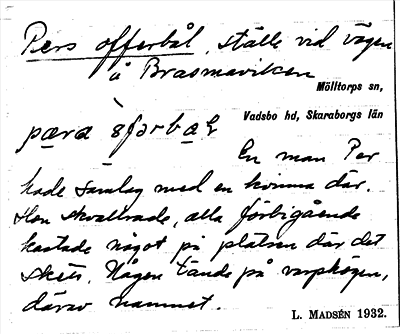 Pers offerbål, ställe vid vägen
å Brasmaviken
Mölltorps sn,
Vadsbo hd, Skaraborgs län
En man Per
hade samlag med en kvinna där.
Hon skvallrade, alla förbigående
kastade något på platsen där det
skett. Någon tände på rishögen,
därav namnet.
L. MADSÉN 1932.